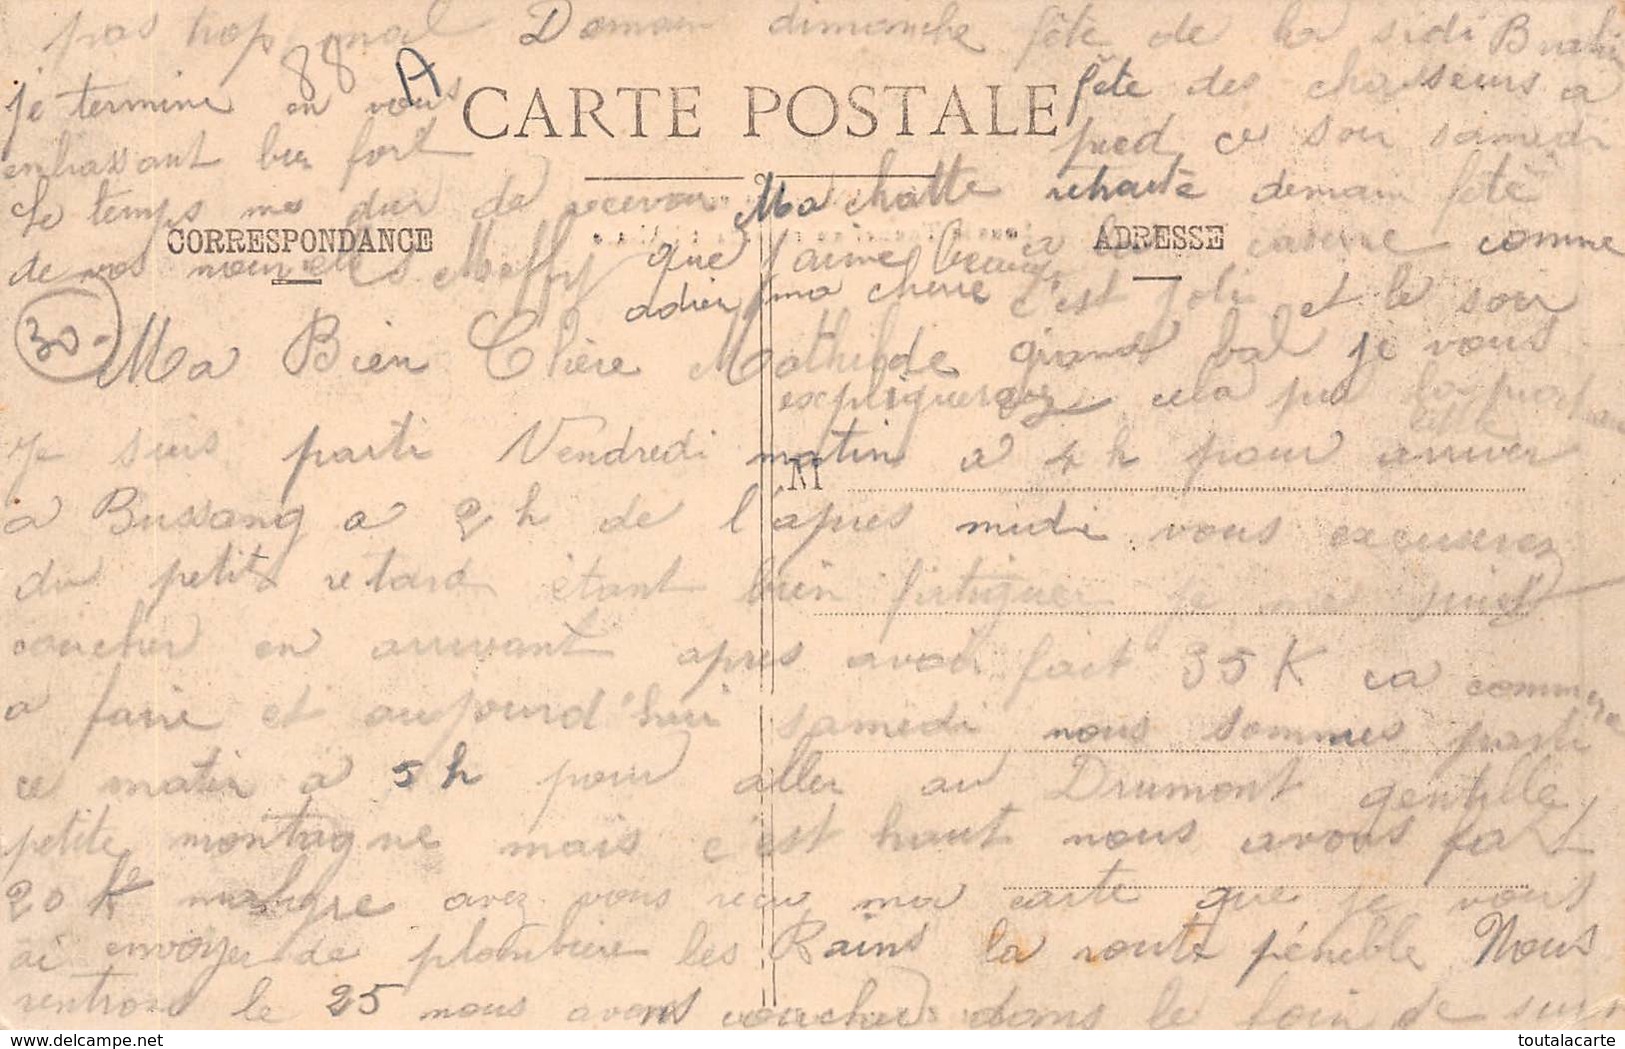 pas trop mal Demain dimanche fête de la sidi Brahi
88 A
je termine en vous
CARTE POSTALE
fête des chasseurs a
embrassant bien fort
pied ce soir samedi
Le temps me dur de recevoir
Ma chatte retraite demain fête
CORRESPONDANCE
ADRESSE
de vos nouvelles
que j'aime beaucp
a la caserne comme
adieu ma cherie
c'est joli et le soir
30-
Ma Bien Chère Mathilde
grand bal je vous
expliquerez cela par la prochaine
lettre
Je suis parti Vendredi matin a 4 h pour arriver
M
a Bussang a 2 h de l'apres midi vous excuserez
du petit retard étant bien fatiguer je me suis
coucher en arrivant apres avoir fait 35 K ca commence
a faire et aujourd'hui samedi nous sommes parti
ce matin a 5 h pour aller au Drumont gentille
petite montagne mais c'est haut nous avons fait
20 K malgre avez vous recu ma carte que je vous
ai envoyer de plombiere les Bains la route pénible Nous
rentrons le 25 nous avons coucher dans le foin de
delcampe.net
toutalacarte